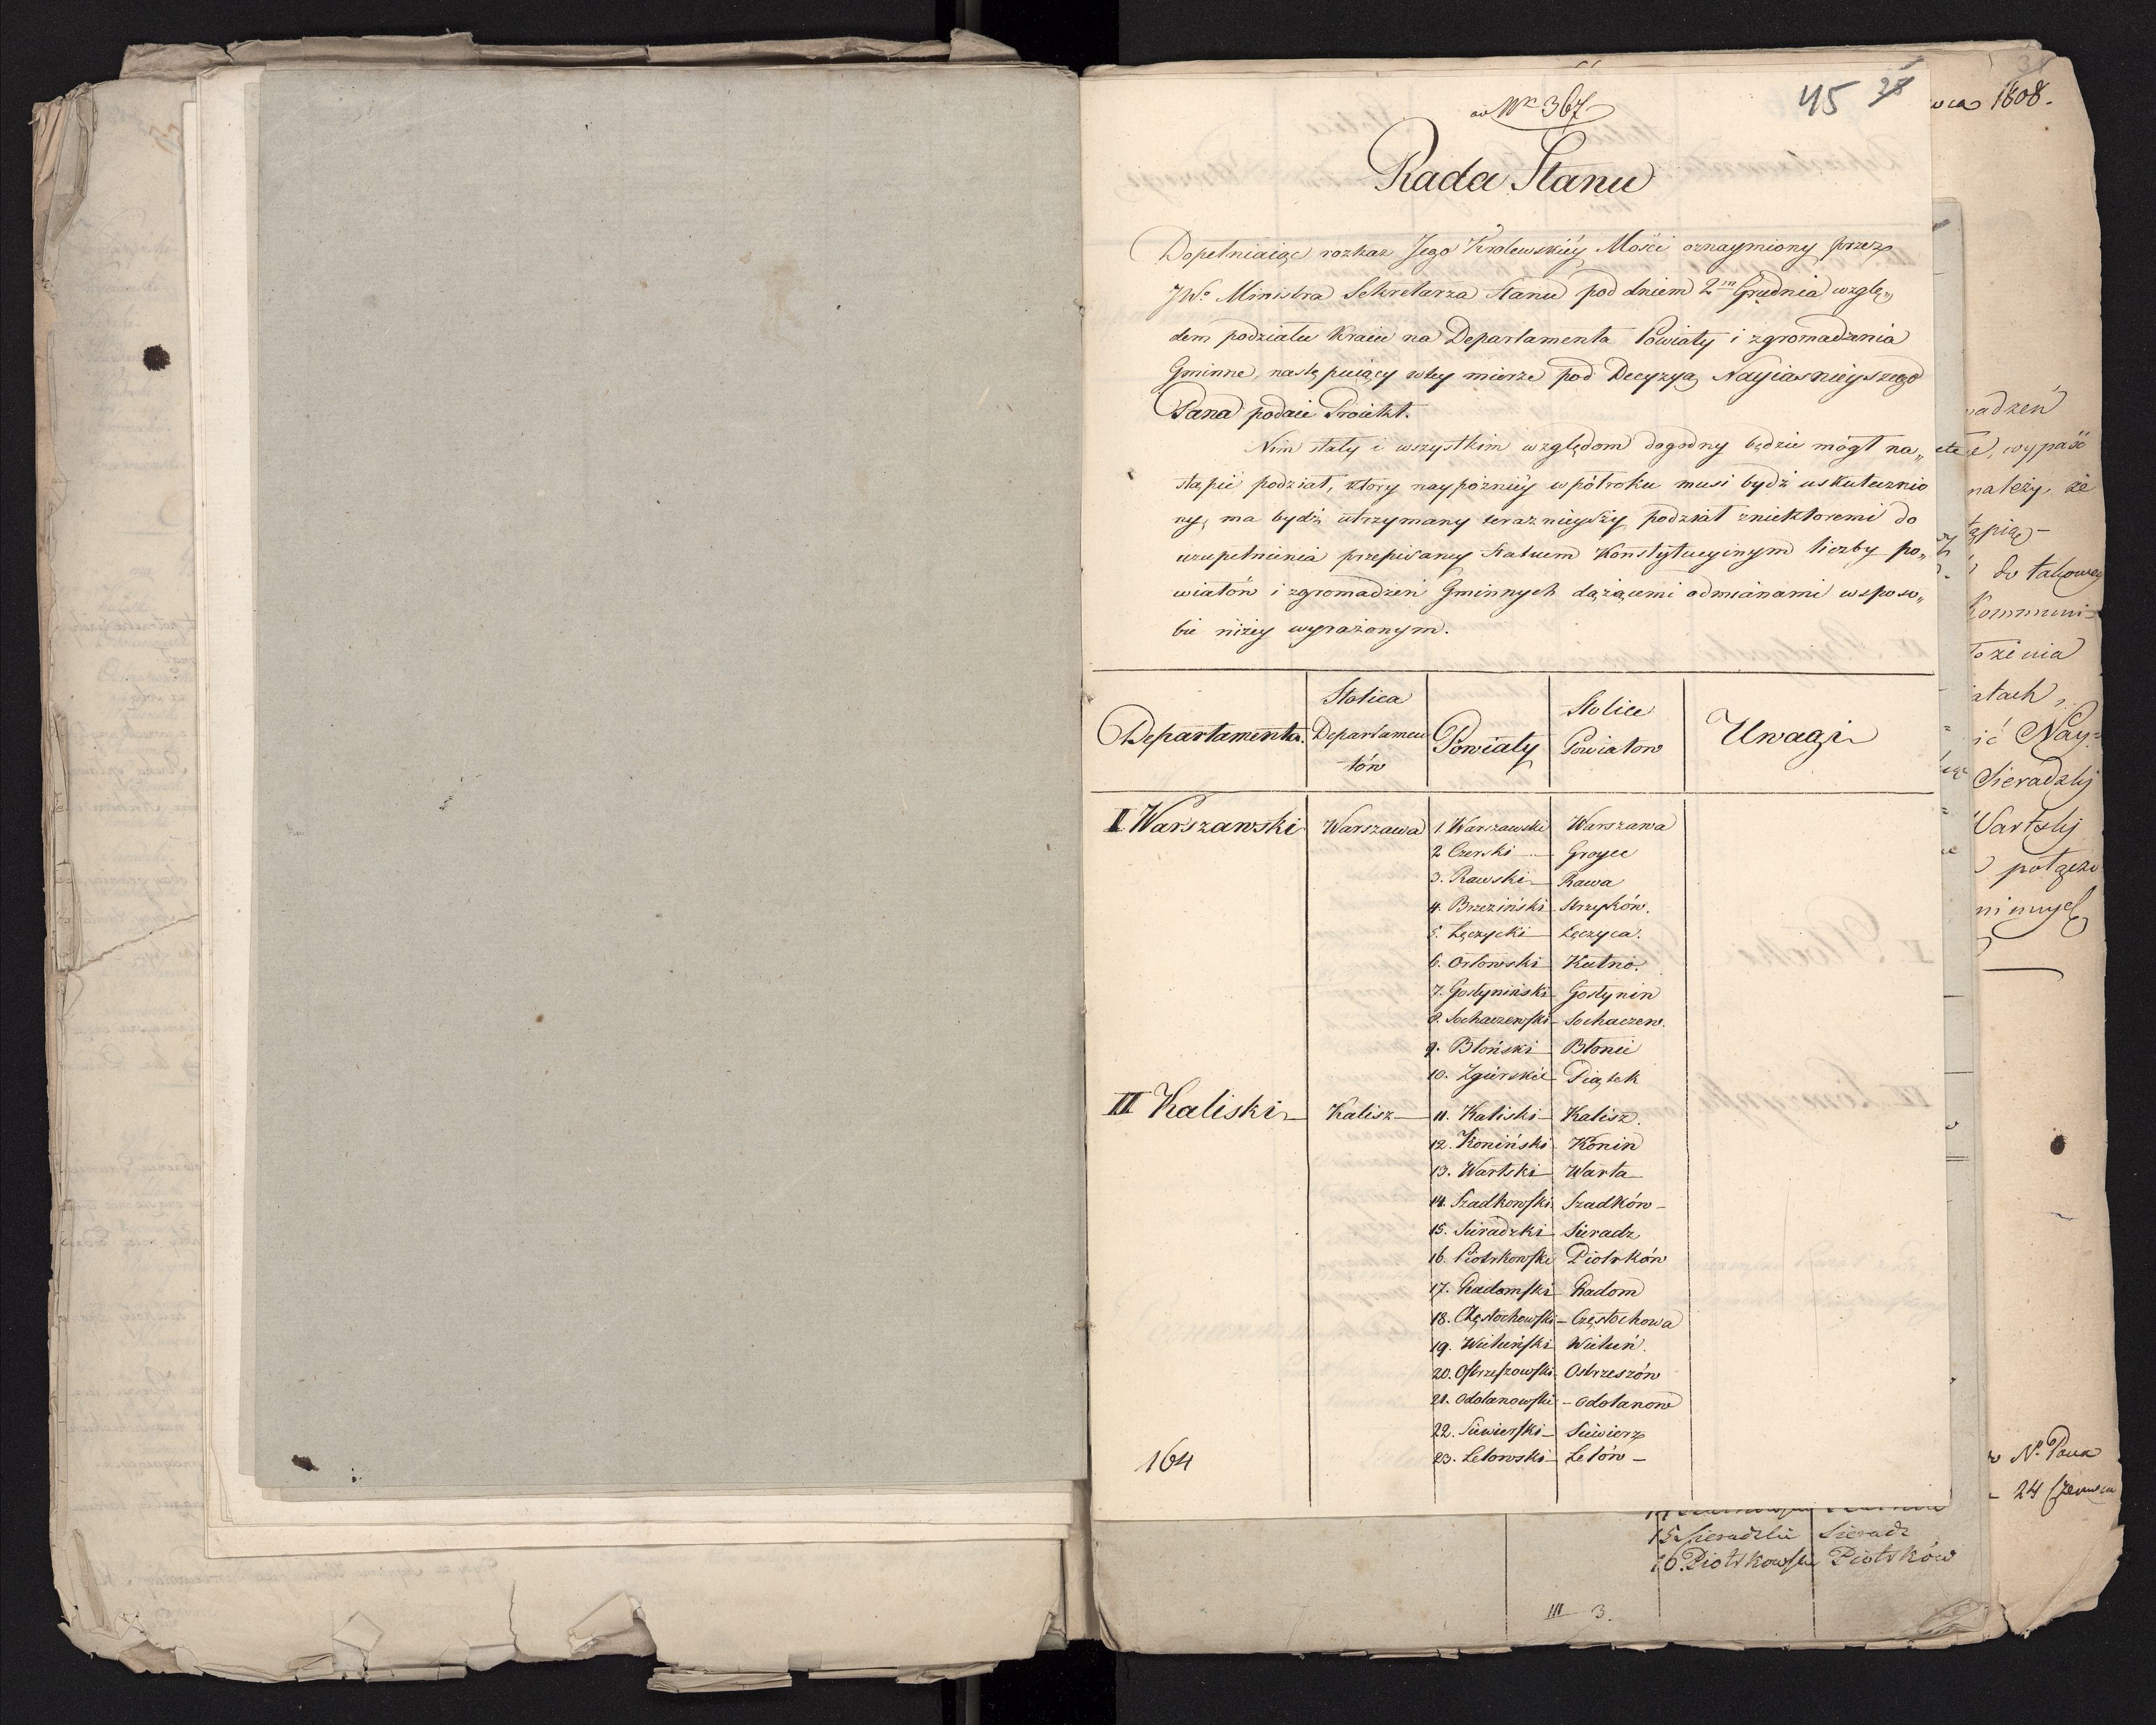 ad Nr 367
45
Rada Stanu
Dopełniaiąc rozkaz Jego Krolewskiéy Mości oznaymiony przez
JWo Ministra Sekretarza Stanu pod dniem 2m Grudnia wzglę„
dem podziału Kraiu na Departamenta Powiaty i zgromadzenia
Gminne, nastęṗuiący w tey mierze pod Decyzyą Nayiasnieyszego
Pana podaie Proiekt.
Nim stały i wszystkim względom dogodny będzie mógł na„
stąpić podział, ktory naypózniéy w półroku musi bydź uskutecznio
ny, ma bydź utrzymany teraznieyszy podział z niektoremi do
uzupełnienia przepisaney Statuem Konstytucyinym liczby po„
wiatów i zgromadzeń Gminnych dążącemi odmianami w sposo„
bie niżey wyrażonym.
Departamenta. Stolica Departamen tów Powiaty Stolice Powiatow Uwagi
I Warszawski Warszawa 1. Warszawski Warszawa
2 Czerski Groyec
3. Rawski Rawa
4. Brzeziński Stryków.
5. Łęczycki Łęczyca.
6. Orłowski Kutno.
7. Gostyniński Gostynin
8. Sochaczewski Sochaczew.
9. Błoński Błonie
10. Zgierski Piątek
II Kaliski Kalisz 11. Kaliski Kalisz.
12. Koniński Konin
13. Wartski Warta
14. Szadkowski Szadków
15. Sieradzki Sieradz
16. Piotrkowski Piotrków
17. Radomski Radom
18. Częstochowski Częstochowa
19. Wieluński Wieluń.
20. Ostrzeszowski Ostrzeszów
21. Odolanowski Odolanow
22. Siewierski Siewierz
23. Lelowski Lelów
164
15 Sieradzki Sieradz
16. Piotrkowski Piotrków
III 3.
1808.
wypaść
należy, że
do takowey
Kommuni-
Nay-
Sieradzkij
Wartskij
No Pana
24 Czerwca